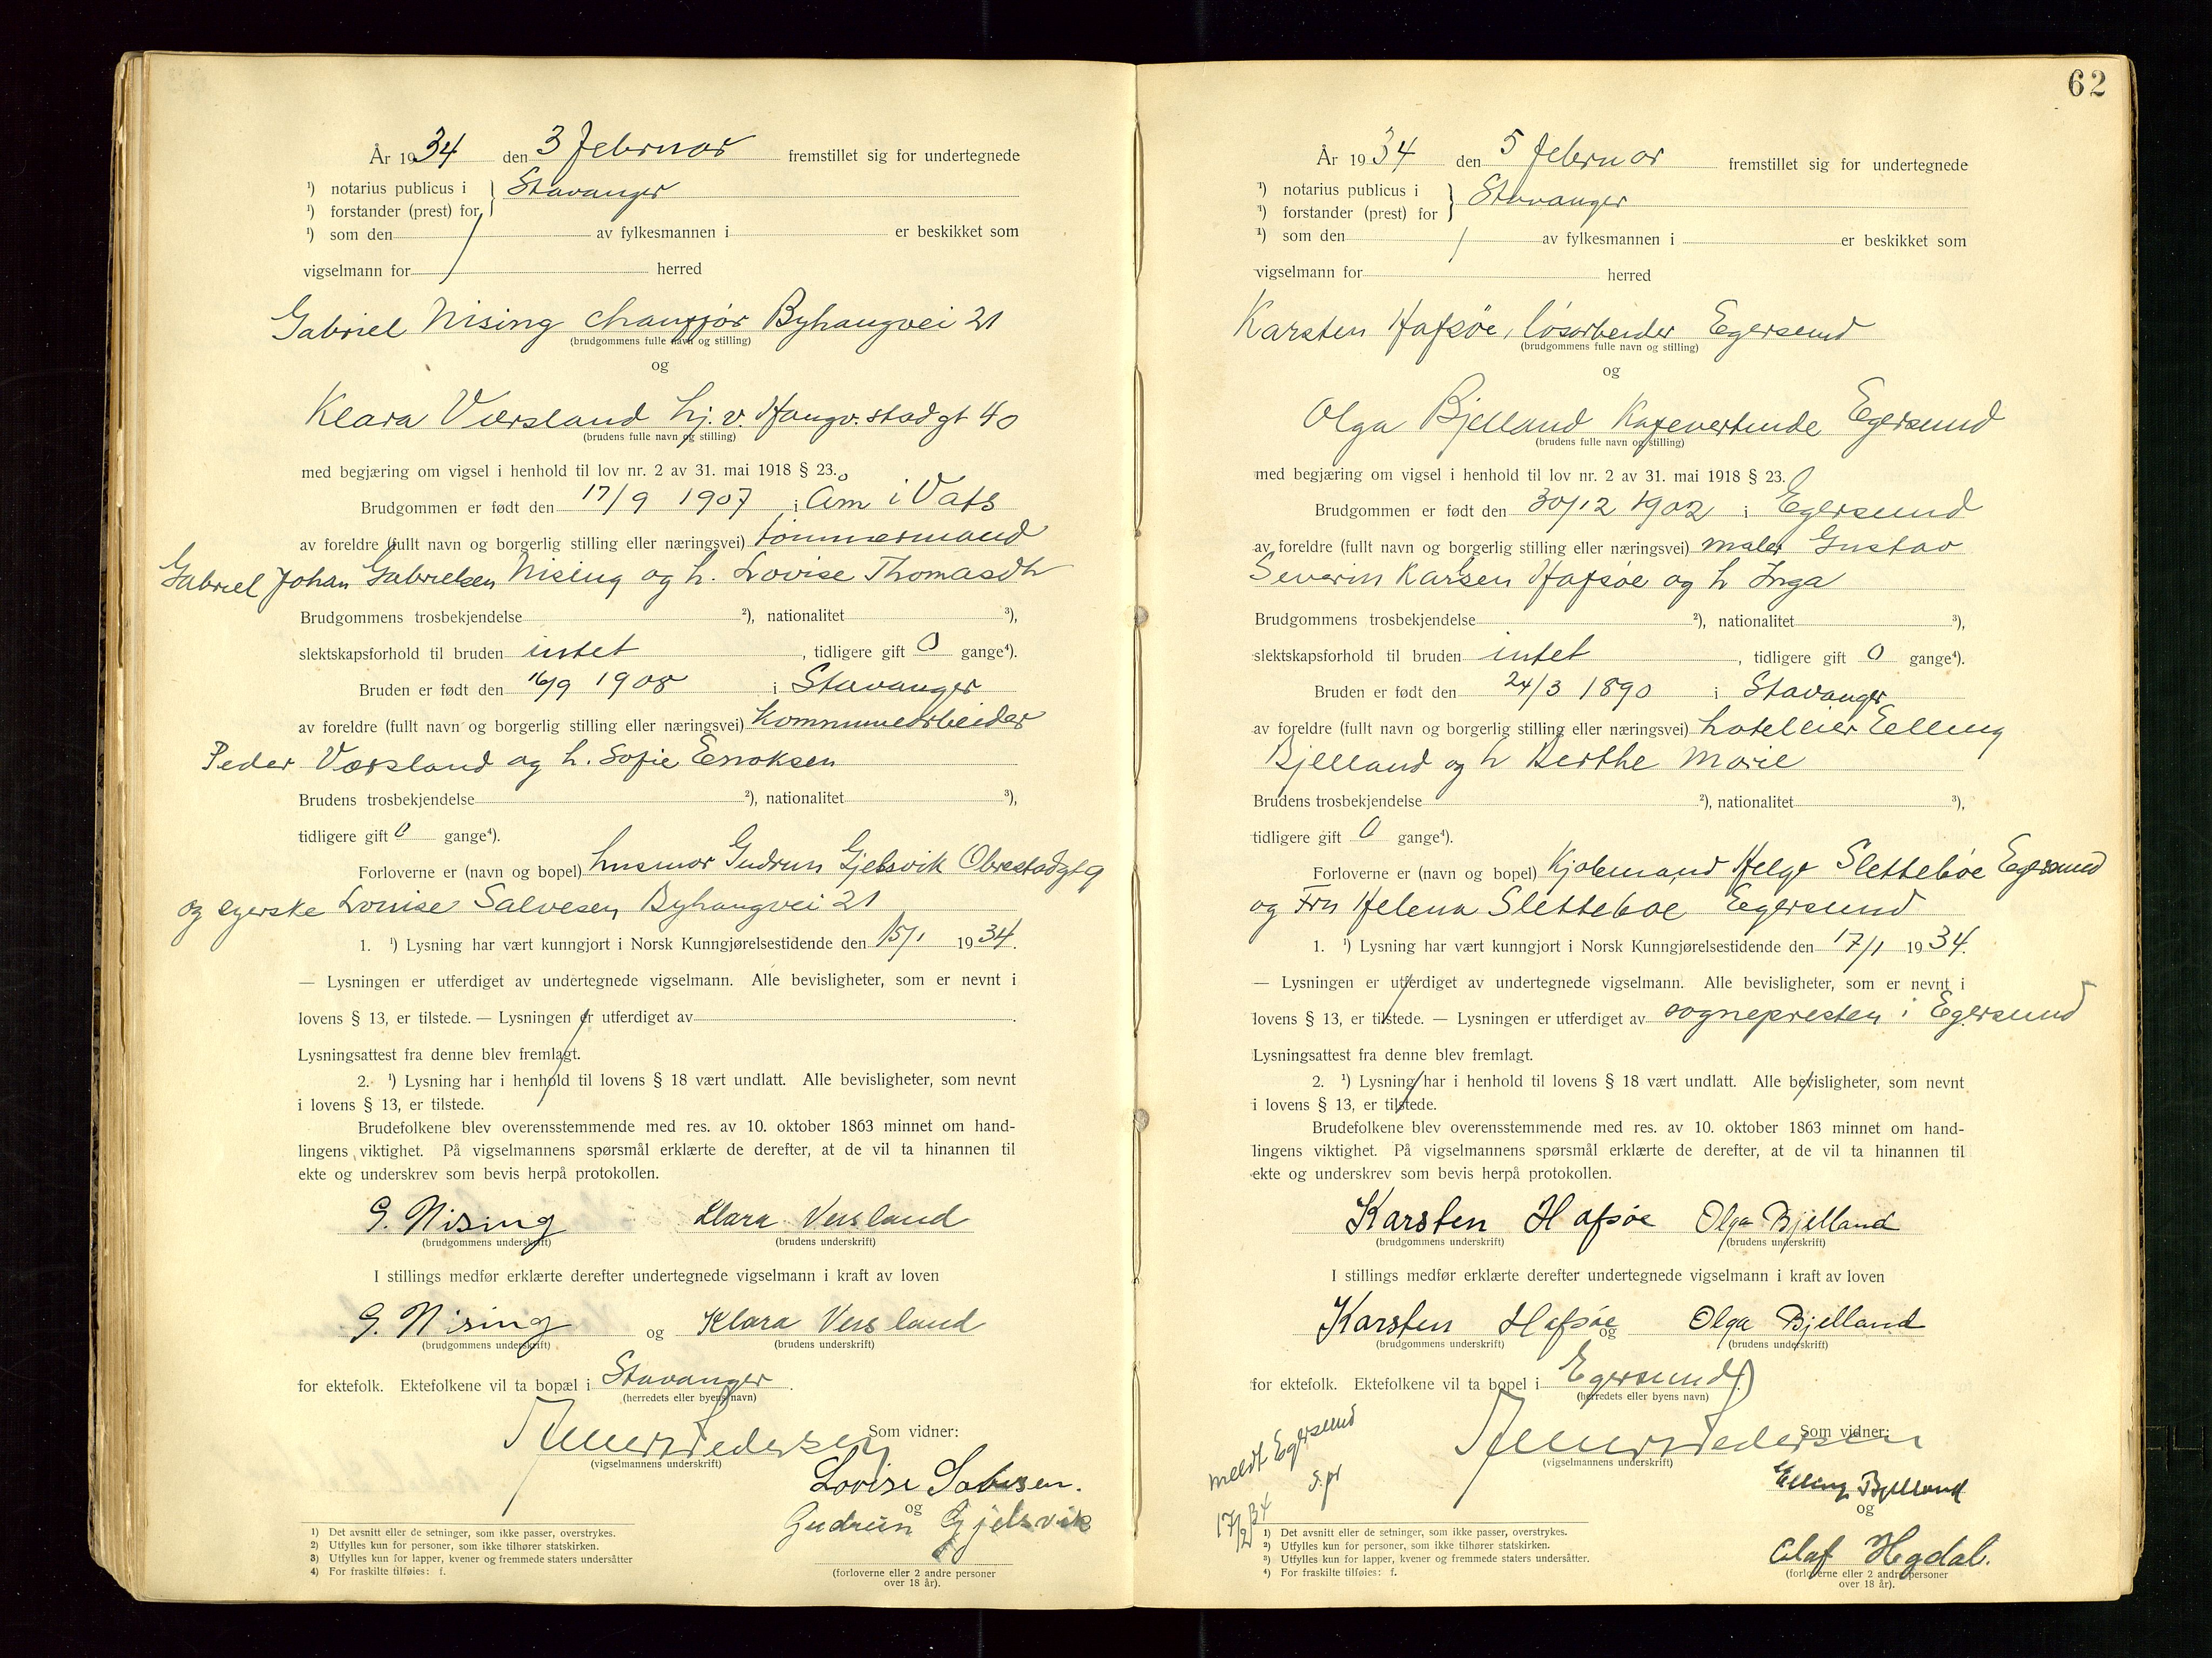 År 1934 den 3 februar fremstillet sig for undertegnede
¹) notarius publicus i } Stavanger
¹) forstander (prest) for
¹) som den / av fylkesmannen i er beskikket som
vigselmann for herred
Gabriel Nising chauffør Byhaugvei 21
(brudgommens fulle navn og stilling)
og
Klara Versland hj. v. Haugv.stadgt 40
(brudens fulle navn og stilling)
med begjæring om vigsel i henhold til lov nr. 2 av 31. mai 1918 § 23.
Brudgommen er født den 17/9 1907 i Åm i Vats
av foreldre (fullt navn og borgerlig stilling eller næringsvei) tømmermand
Gabriel Johan Gabrielsen Nising og h. Lovise Thomasdtr
Brudgommens trosbekjendelse ²), nationalitet ³),
slektskapsforhold til bruden intet , tidligere gift 0 gange⁴).
Bruden er født den 16/9 1908 i Stavanger
av foreldre (fullt navn og borgerlig stilling eller næringsvei) Kommunearbeider
Peder Versland og h. Sofie Enoksen
Brudens trosbekjendelse ²), nationalitet ³),
tidligere gift 0 gange⁴).
Forloverne er (navn og bopel) husmor Gudrun Gjelsvik Obrestadgt 9
og syerske Louise Salvesen Byhaugvei 21
1. ¹) Lysning har vært kunngjort i Norsk Kunngjørelsestidende den 15/1 1934.
— Lysningen er utferdiget av undertegnede vigselmann. Alle bevisligheter, som er nevnt i
lovens § 13, er tilstede. — Lysningen er utferdiget av .
Lysningsattest fra denne blev fremlagt.
2. ¹) Lysning har i henhold til lovens § 18 vært undlatt. Alle bevisligheter, som nevnt
i lovens § 13, er tilstede.
Brudefolkene blev overensstemmende med res. av 10. oktober 1863 minnet om hand-
lingens viktighet. På vigselmannens spørsmål erklærte de derefter, at de vil ta hinannen til
ekte og underskrev som bevis herpå protokollen.
G. Nising Klara Versland
(brudgommens underskrift) (brudens underskrift)
I stillings medfør erklærte derefter undertegnede vigselmann i kraft av loven
G. Nising og Klara Versland
(brudgommens underskrift) (brudens underskrift)
for ektefolk. Ektefolkene vil ta bopæl i Stavanger .
(herredets eller byens navn)
Som vidner:
(vigselmannens underskrift)
Lovise Salvesen.
og
Gudrun Gjelsvik
(forloverne eller 2 andre personer
over 18 år).
1) Det avsnitt eller de setninger, som ikke passer, overstrykes.
2) Utfylles kun for personer, som ikke tilhører statskirken.
3) Utfylles kun for lapper, kvener og fremmede staters undersåtter
4) For fraskilte tilføies: f.
62
År 1934 den 5 februar fremstillet sig for undertegnede
¹) notarius publicus i } Stavanger
¹) forstander (prest) for
¹) som den / av fylkesmannen i er beskikket som
vigselmann for herred
Karsten Hafsøe, løsarbeider Egersund
(brudgommens fulle navn og stilling)
og
Olga Bjelland Kafevertinde Egersund
(brudens fulle navn og stilling)
med begjæring om vigsel i henhold til lov nr. 2 av 31. mai 1918 § 23.
Brudgommen er født den 30/12 1902 i Egersund
av foreldre (fullt navn og borgerlig stilling eller næringsvei) maler Gustav
Severin Karlsen Hafsøe og h Inga
Brudgommens trosbekjendelse ²), nationalitet ³),
slektskapsforhold til bruden intet , tidligere gift 0 gange⁴).
Bruden er født den 24/3 1890 i Stavanger
av foreldre (fullt navn og borgerlig stilling eller næringsvei) hotellier Elling
Bjelland og h Berthe Marie
Brudens trosbekjendelse ²), nationalitet ³),
tidligere gift 0 gange⁴).
Forloverne er (navn og bopel) Kjøbmand Helge Slettebøe Egersund
og Fru Helena Slettebøe Egersund
1. ¹) Lysning har vært kunngjort i Norsk Kunngjørelsestidende den 17/1 1934.
— Lysningen er utferdiget av undertegnede vigselmann. Alle bevisligheter, som er nevnt i
lovens § 13, er tilstede. — Lysningen er utferdiget av sognepresten i Egersund
Lysningsattest fra denne blev fremlagt.
2. ¹) Lysning har i henhold til lovens § 18 vært undlatt. Alle bevisligheter, som nevnt
i lovens § 13, er tilstede.
Brudefolkene blev overensstemmende med res. av 10. oktober 1863 minnet om hand-
lingens viktighet. På vigselmannens spørsmål erklærte de derefter, at de vil ta hinannen til
ekte og underskrev som bevis herpå protokollen.
Karsten Hafsøe Olga Bjelland
(brudgommens underskrift) (brudens underskrift)
I stillings medfør erklærte derefter undertegnede vigselmann i kraft av loven
Karsten Hafsøe og Olga Bjelland
(brudgommens underskrift) (brudens underskrift)
for ektefolk. Ektefolkene vil ta bopel i Egersund
(herredets eller byens navn)
meldt Egersund
s.pr
17/2 34
Som vidner:
(vigselmannens underskrift)
Elling Bjelland
og
Olaf Hegdal.
(forloverne eller 2 andre personer
over 18 år).
1) Det avsnitt eller de setninger, som ikke passer, overstrykes.
2) Utfylles kun for personer, som ikke tilhører statskirken.
3) Utfylles kun for lapper, kvener og fremmede staters undersåtter.
4) For fraskilte tilføies: f.